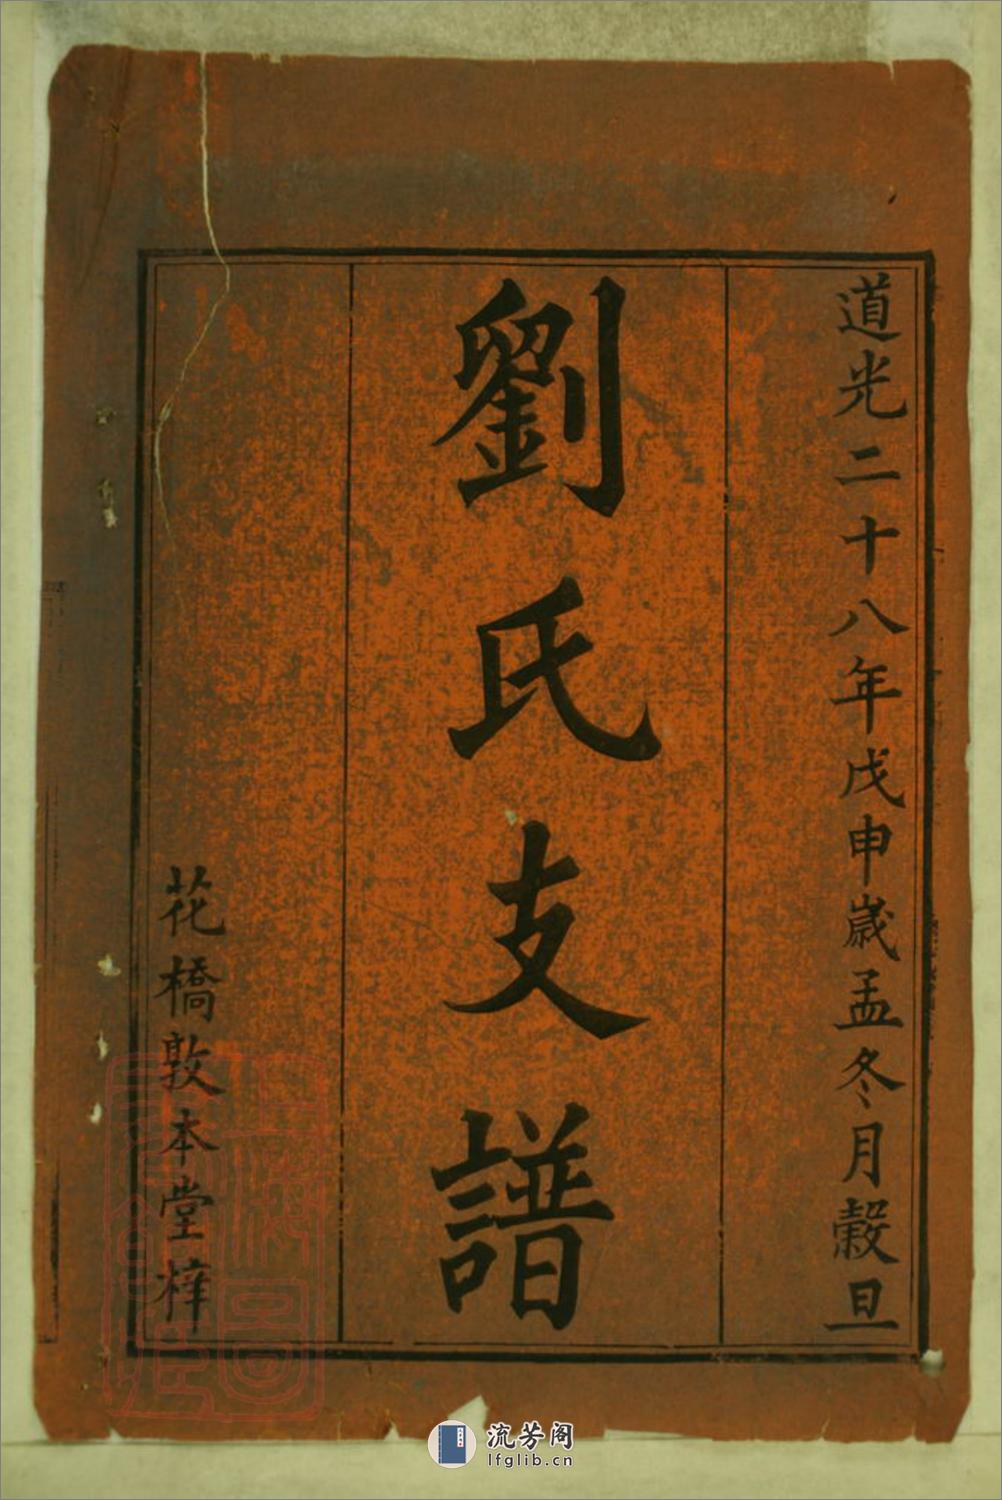 道光二十八年戊申歲孟冬月穀旦
劉氏支譜
花橋敦本堂梓
流芳阁
lfglib.cn